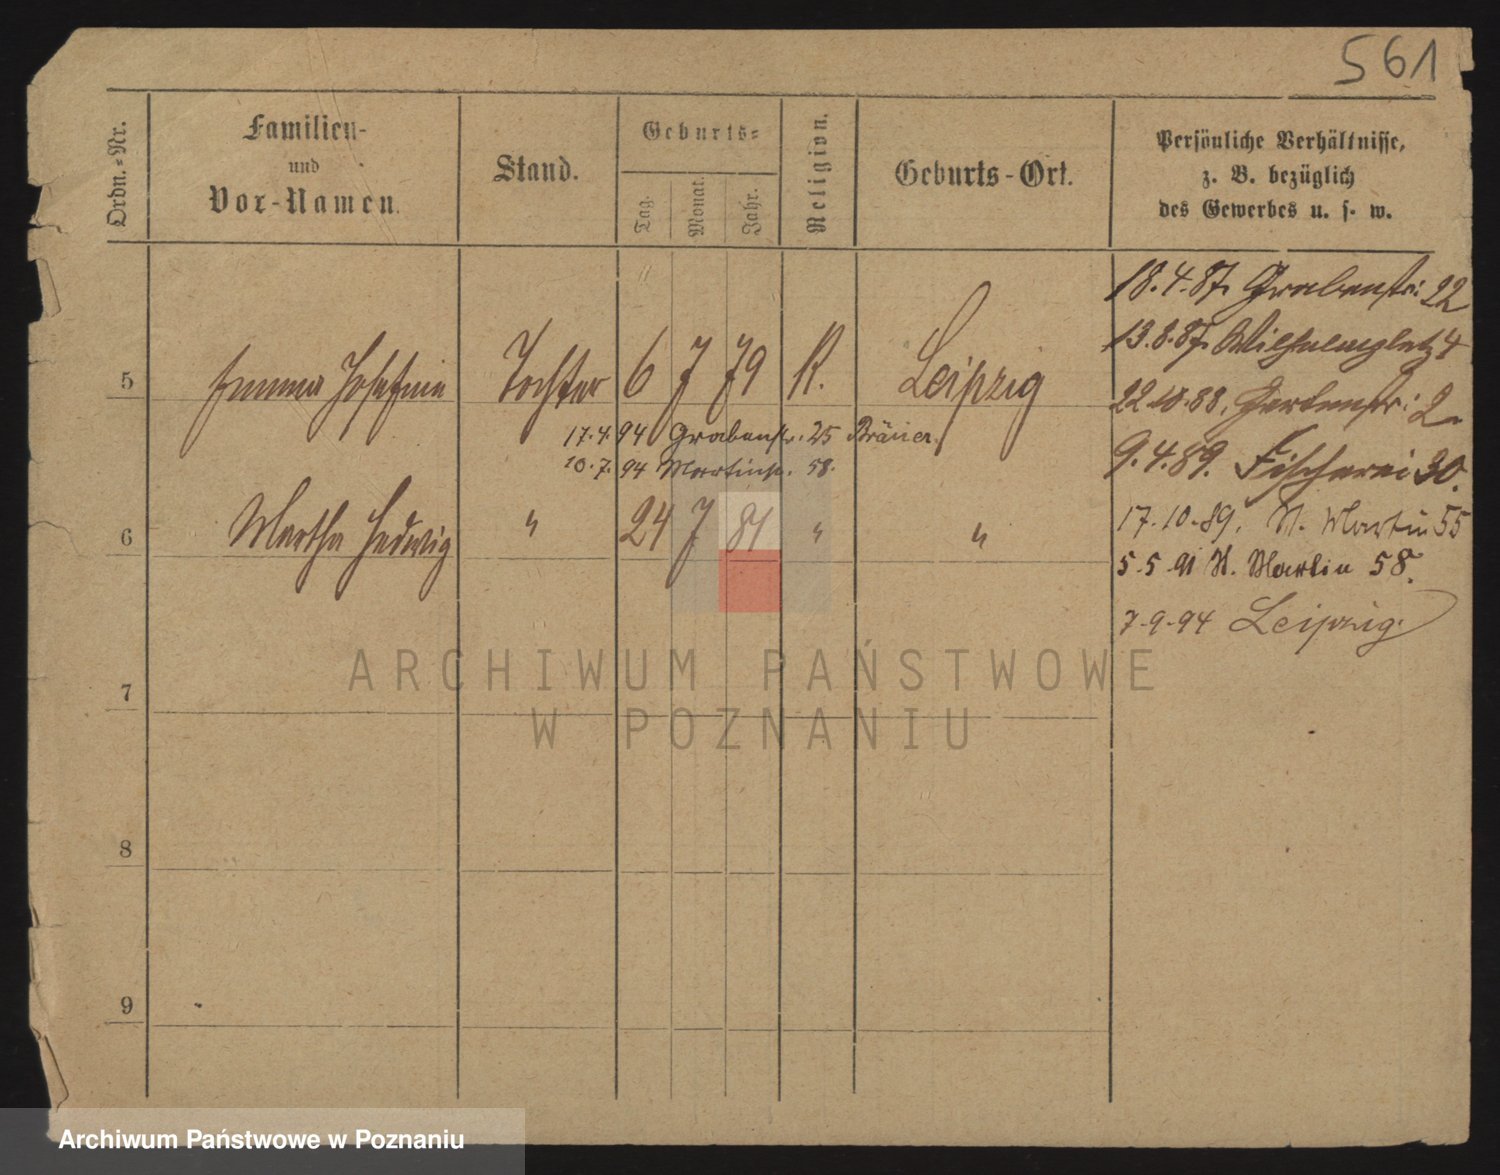 561
Ordn.-Nr.
Familien-
und
Vor-Namen.
Stand.
Geburts-
Tag.
Monat.
Jahr.
Religion.
Geburts-Ort.
Persönliche Verhältnisse,
z. B. bezüglich
des Gewerbes u. s. w.
18.4.87. Grabenstr: 22
13.8.87. Wilhelmsplatz 4
5 Emma Josefine Tochter 6 7 79 K. Leipzig
22.10.88. Gartenstr: 2
17.4.94 Grabenstr. 25 Bräuer.
9.4.89. Fischerei 30.
10.7.94 Martinstr. 58.
6 Martha Hedwig " 24 7 81 " "
17.10.89. St. Martin 55
5.5.91 St. Martin 58.
7.9.94 Leipzig.
ARCHIWUM PAŃSTWOWE
W POZNANIU
7
8
9
Archiwum Państwowe w Poznaniu